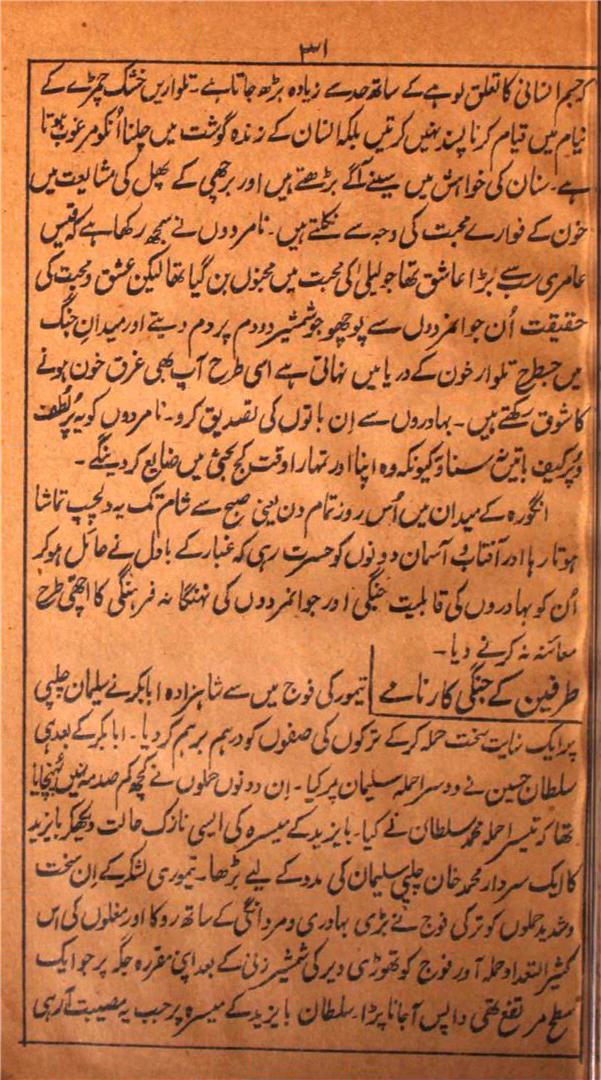 ۳۱
کہ جسم انسانی کا تعلق لوہے کے ساتھ حد سے زیادہ بڑھ جاتا ہے۔ تلواریں خشک چمڑے کے
نیام میں قیام کرنا پسند نہیں کرتیں بلکہ انسان کے زندہ گوشت میں چلنا اُنکو مرغوب ہوتا
ہے۔ سنان کی خواہش میں سینے آگے بڑھتے ہیں اور برچھی کے پھل کی مشایعت میں
خون کے فوارے محبت کی وجہ سے نکلتے ہیں۔ نامردوں نے سمجھ رکھا ہے کہ قیس
عامری سب سے بڑا عاشق تھا جو لیلیٰ کی محبت میں مجنوں بن گیا تھا لیکن عشق و محبت کی
حقیقت اُن جوانمردوں سے پوچھو جو شمشیر دو دم پر دم دیتے اور میدانِ جنگ
میں جسطرح تلوار خون کے دریا میں نہاتی ہے اسی طرح آپ بھی غرق خون ہونے
کا شوق رکھتے ہیں۔ بہادروں سے اِن باتوں کی تصدیق کرو۔ نامردوں کو یہ پُر لطف
و پُر کیف باتیں نہ سناؤ کیونکہ وہ اپنا اور تمہارا وقت کج بحثی میں ضایع کر دینگے۔
انگورہ کے میدان میں اُس روز تمام دن یعنی صبح سے شام تک یہ دلچسپ تماشا
ہوتا رہا اور آفتاب و آسمان دونوں کو حسرت رہی کہ غبار کے بادل نے حائل ہو کر
اُن کو بہادروں کی قابلیت جنگی اور جوانمردوں کی نہنگانہ فرہنگی کا اچھی طرح
معائنہ نہ کرنے دیا۔
طرفین کے جنگی کارنامے تیمور کی فوج میں سے شاہزادہ ابابکر نے سلیمان چلپی
پر ایک نہایت سخت حملہ کر کے ترکوں کی صفوں کو درہم برہم کر دیا۔ ابابکر کے بعد ہی
سلطان حسین نے دوسرا حملہ سلیمان پر کیا۔ اِن دونوں حملوں نے کچھ کم صدمہ نہیں پہنچایا
تھا کہ تیسرا حملہ محمد سلطان نے کیا۔ بایزید کے میسرہ کی ایسی نازک حالت دیکھ کر بایزید
کا ایک سردار محمد خان چلپی سلیمان کی مدد کے لیے بڑھا۔ تیموری لشکر کے اِن سخت
و شدید حملوں کو ترکی فوج نے بڑی بہادری و مردانگی کے ساتھ روکا اور مغلوں کی اس
کثیر التعداد حملہ آور فوج کو تھوڑی دیر کی شمشیر زنی کے بعد اپنی مقررہ جگہ پر جو ایک
سطح مرتفع تھی واپس آجانا پڑا۔ سلطان بایزید کے میسرہ پر جب یہ مصیبت آ رہی